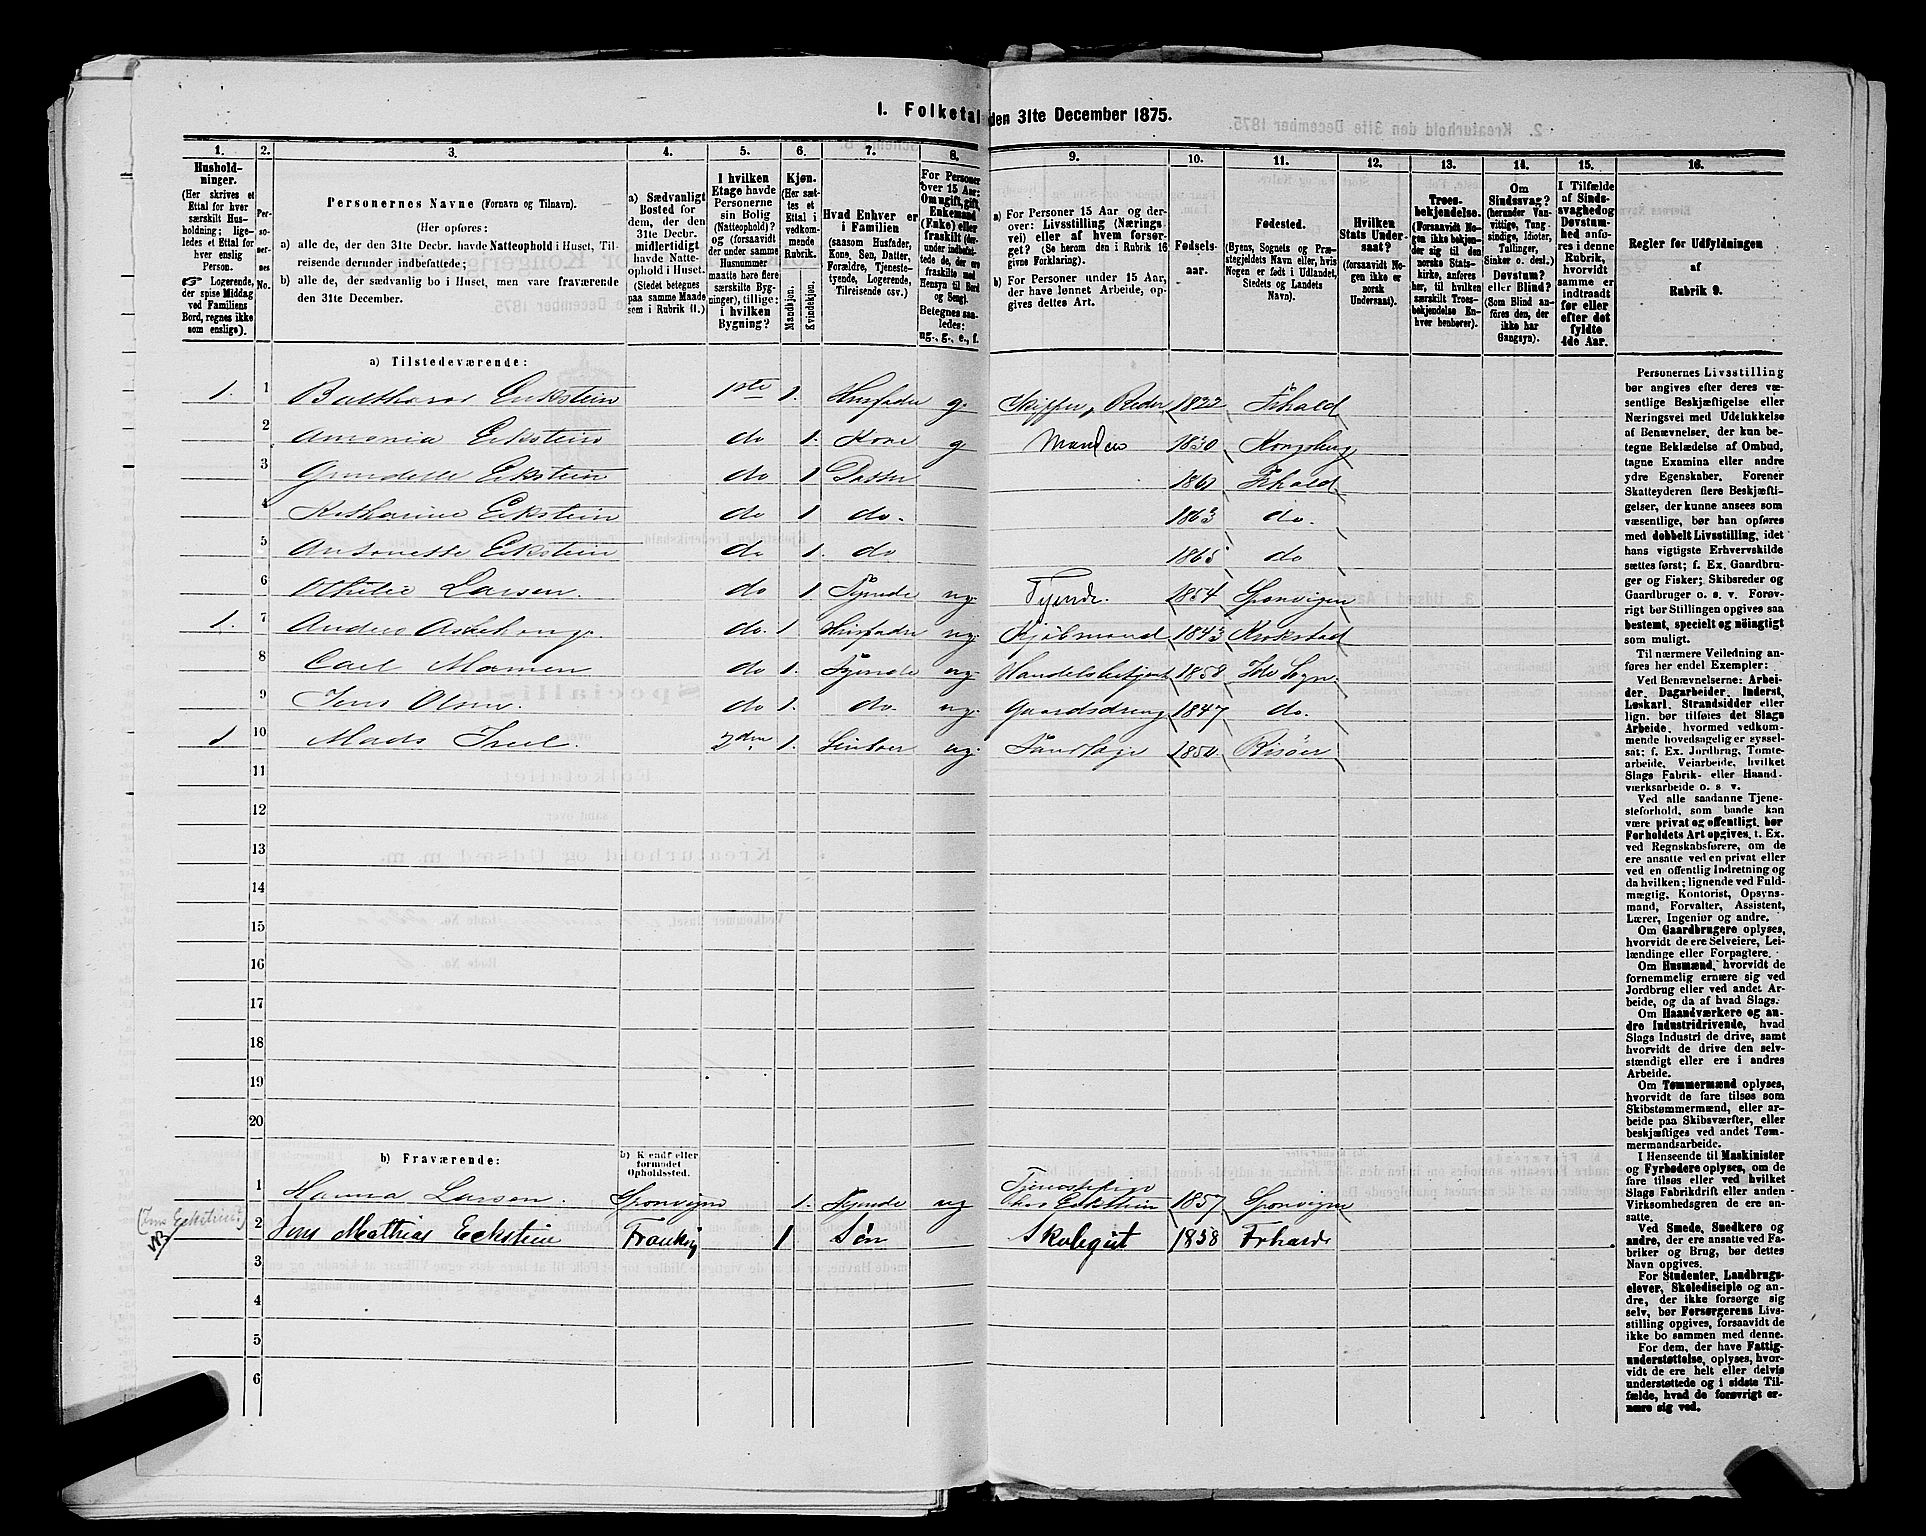 I. Folketal den 31te December 1875.
1. 2. 3. 4. 5. 6. 7. 8. 9. 10. 11. 12. 13. 14. 15. 16.
Husholdninger.
(Her skrives et Ettal for hver særskilt Husholdning; ligeledes et Ettal for hver enslig Person.
Logerende, der spise Middag ved Familiens Bord, regnes ikke som enslige).
Personernes No.
Personernes Navne (Fornavn og Tilnavn).
(Her opføres:
a) alle de, der den 31te Decbr. havde Natteophold i Huset, Tilreisende derunder indbefattede;
b) alle de, der sædvanlig bo i Huset, men vare fraværende den 31te December.
a) Sædvanligt Bosted for dem, der den 31te Decbr. midlertidigt havde Natteophold i Huset.
(Stedet betegnes paa samme Maade som i Rubrik 11.)
I hvilken Etage havde Personerne sin Bolig (Natteophold)? og (forsaavidt der under samme Husnummer maatte høre flere særskilte Bygninger), tillige: i hvilken Bygning?
Kjøn.
(Her sættes et Ettal i vedkommende Rubrik.
Mandkjøn. Kvindekjøn.
Hvad Enhver er i Familien
(saasom Husfader, Kone, Søn, Datter, Forældre, Tjenestetyende, Logerende, Tilreisende osv.)
For Personer over 15 Aar: Om ugift, gift, Enkemand (Enke) eller fraskilt (derunder indbefattede de, der ere fraskilte med Hensyn til Bord og Seng).
Betegnes saaledes: ug., g., e., f.
a) For Personer 15 Aar og derover: Livsstilling (Næringsvei) eller af hvem forsørget? (Se herom den i Rubrik 16 givne Forklaring).
b) For Personer under 15 Aar, der have lønnet Arbeide, opgives dettes Art.
Fødselsaar.
Fødested.
(Byens, Sognets og Præstegjeldets Navn eller, hvis Nogen er født i Udlandet, Stedets og Landets Navn).
Hvilken Stats Undersaat?
(forsaavidt Nogen ikke er norsk Undersaat).
Troesbekjendelse.
(Forsaavidt Nogen ikke bekjender sig til den norske Statskirke, anføres her, til hvilken særskilt Troesbekjendelse Enhver henhører).
Om Sindssvag?
(herunder Vanvittige, Tungsindige, Idioter, Tullinger, Sinker o. desl.)
Døvstum? eller Blind?
(Som Blind anføres den, der ikke har Gangsyn).
I Tilfælde af Sindssvaghed og Døvstumhed anføres i denne Rubrik, hvorvidt samme er indtraadt før eller efter det fyldte 4de Aar.
Regler for Udfyldningen af Rubrik 9.
a) Tilstedeværende:
1. 1 Balthasar Eckstein 1ste 1. Husfader g. Skipper, Reder 1822 Fhald
2 Amonia Eckstein do 1. Kone g Manden 1830 Kongsberg
3 Eckstein do 1 Datter 1861 Fhald
4 Katharine Eckstein do 1 do. 1863 do.
5 Antonette Eckstein do 1. do 1865 do
6 Othilie Larsen. do 1 Tyende ug. Tyende. 1854 Gronvigen
1. 7 Anders do. 1 Husfader ug. Kjøbmand 1843 Krokstad
8 Carl Mamen do 1. Tyende ug. Handelsbetjent 1858 Ide Sogn
9 Jens Olsen. do 1. do. ug. Gaardsdreng 1847 do.
1 10 Mads Juel. 2den 1. ug. Tandlæge 1850 Risøer
11
12
13
14
15
16
17
18
19
20
b) Fraværende:
b) Kjendt eller formodet Opholdssted.
1 Hanna Larsen. Gronvigen 1. Tyende ug Tjenestepige hos Eckstein 1857 Gronvigen
(Jens Eckstein?)
NB
2 Jens Mathias Eckstein 1 Søn Skolegut 1858 Frhald
3
4
5
6
Personernes Livsstilling
bør angives efter deres væ-
sentlige Beskjæftigelse eller
Næringsvei med Udelukkelse
af Benævnelser, der kun be-
tegne Beklædelse af Ombud,
tagne Examina eller andre
ydre Egenskaber. Forener
Skatteyderen flere Beskjæfti-
gelser, der kunne ansees som
væsentlige, bør han opføres
med dobbelt Livsstilling, idet
hans vigtigste Erhvervskilde
sættes først; f. Ex. Gaardbru-
ger og Fisker; Skibsreder og
Gaardbruger o. s. v. Forøv-
rigt bør Stillingen opgives saa
bestemt, specielt og nøiagtigt
som muligt.
Til nærmere Veiledning an-
føres her endel Exempler:
Ved Benævnelserne: Arbei-
der, Dagarbeider, Inderst,
Løskarl, Strandsidder eller
lign. bør tilføies det Slags
Arbeide, hvormed vedkom-
mende hovedsagelig er syssel-
sat; f. Ex. Jordbrug, Tomte-
arbeide, Veiarbeide, hvilket
Slags Fabrik- eller Haand-
værksarbeide o. s. v.
Ved alle saadanne Tjene-
steforhold, som baade kan
være privat og offentligt, bør
Forholdets Art opgives, t. Ex.
ved Regnskabsførere, om de
ere ansatte ved en privat eller
ved en offentlig Indretning og
da hvilken; lignende ved Fuld-
mægtig, Kontorist, Opsyns-
mand, Forvalter, Assistent,
Lærer, Ingeniør og andre.
Om Gaardbrugere oplyses,
hvorvidt de ere Selveiere, Lei-
lændinge eller Forpagtere.
Om Husmænd, hvorvidt de
fornemmelig ernære sig ved
Jordbrug eller ved andet Ar-
beide, og da af hvad Slags.
Om Haandværkere og an-
dre Industridrivende, hvad
Slags Industri de drive, samt
hvorvidt de drive den selv-
stændigt eller ere i andres
Arbeide.
Om Tømmermænd oplyses,
hvorvidt de fare tilsøs som
Skibstømmermænd, eller ar-
beide paa Skibsværfter, eller
beskjæftiges ved andet Tøm-
mermandsarbeide.
I Henseende til Maskinister
og Fyrbødere oplyses, om de
fare tilsøs eller ved hvilket
Slags Fabrikdrift eller anden
Virksomhedsgren de ere an-
satte.
Ved Smede, Snedkere og
andre, der ere ansatte ved Fa-
briker og Brug, bør dettes
Navn opgives.
For Studenter, Landbrugs-
elever, Skoledisciple og an-
dre, der ikke forsørge sig
selv, bør Forsørgerens Livs-
stilling opgives, forsaavidt de
ikke bo sammen med denne.
For dem, der have Fattig-
understøttelse, oplyses, hvor-
vidt de ere helt eller delvis
understøttede og i sidste Til-
fælde, hvad de forøvrigt er-
nære sig ved.